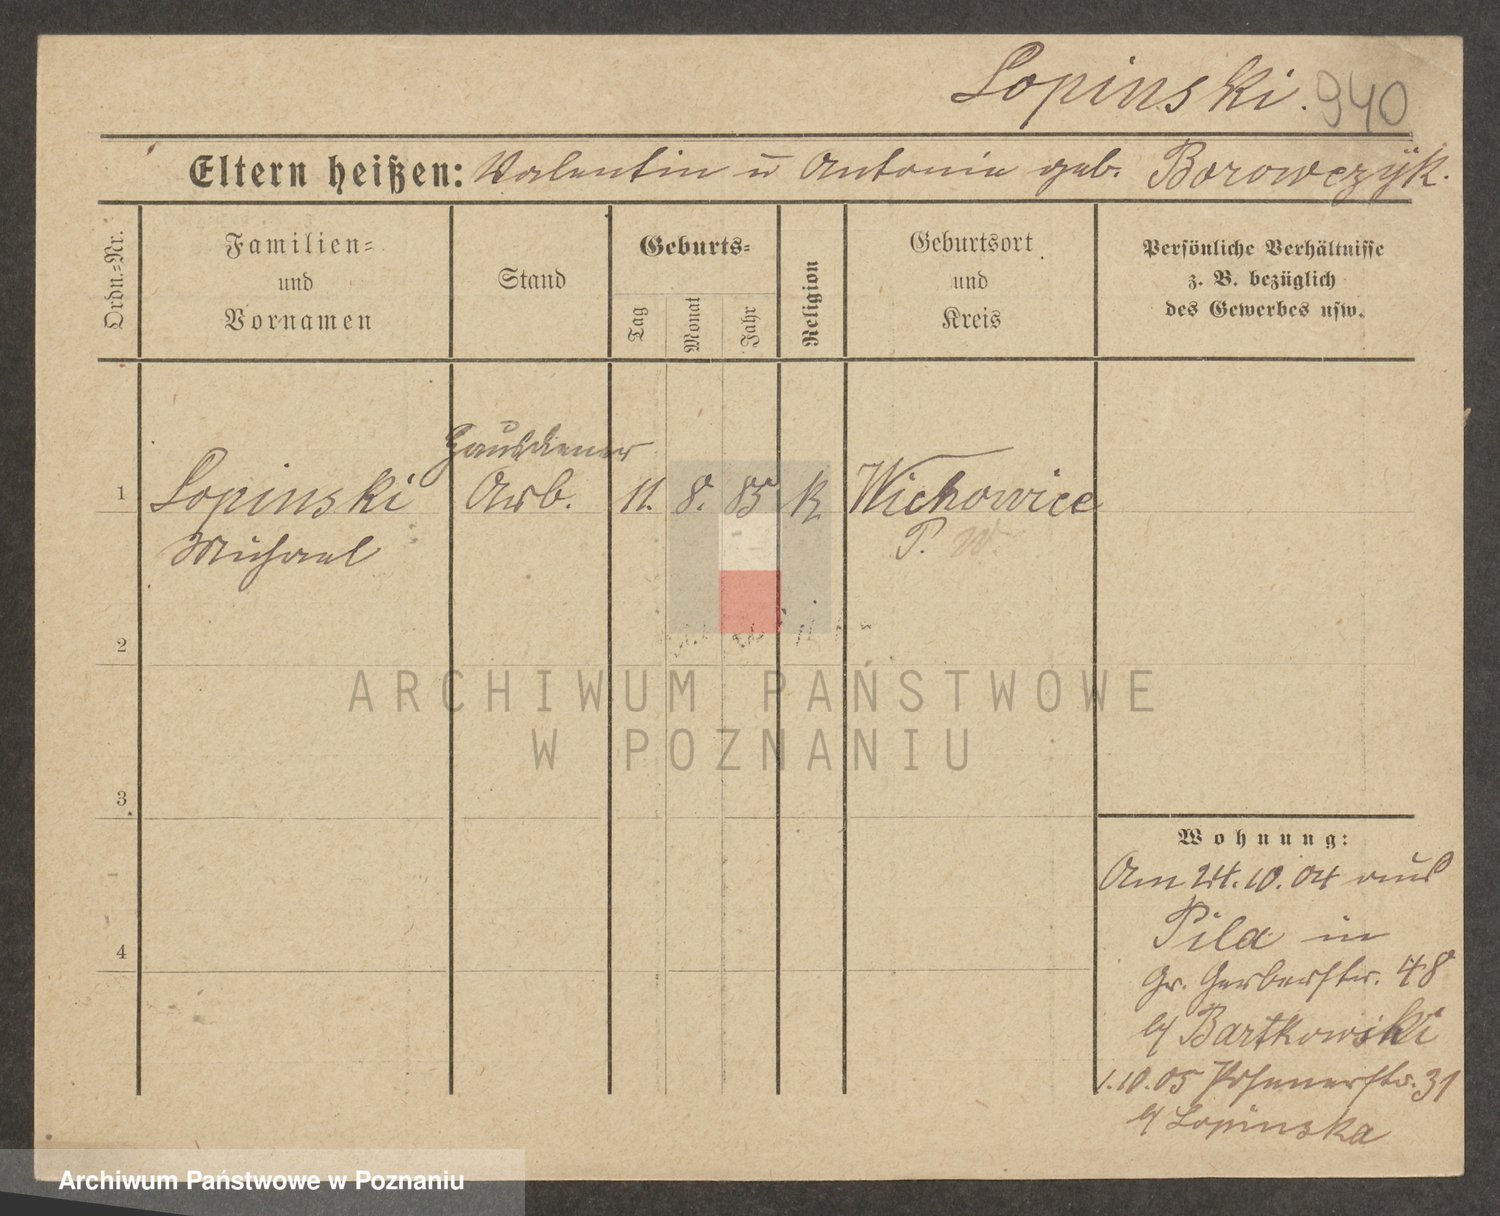 Lopinski. 940
Eltern heißen: Valentin u Antonie geb. Borowczyk.
Ordn.=Nr.
Familien=
und
Vornamen
Stand
Geburts=
Tag
Monat
Jahr
Religion
Geburtsort
und
Kreis
Persönliche Verhältnisse
z. B. bezüglich
des Gewerbes usw.
Hausdiener
1 Lopinski Arb. 11. 8. 85 k Wichowice
Michael P. W.
2
3
4
ARCHIWUM PAŃSTWOWE
W POZNANIU
Wohnung:
Am 24.10.04 aus
Pila in
Gr. Gerberstr. 48
b/ Bartkowski
1.10.05 Posenerstr. 31
b/ Lopinska
Archiwum Państwowe w Poznaniu